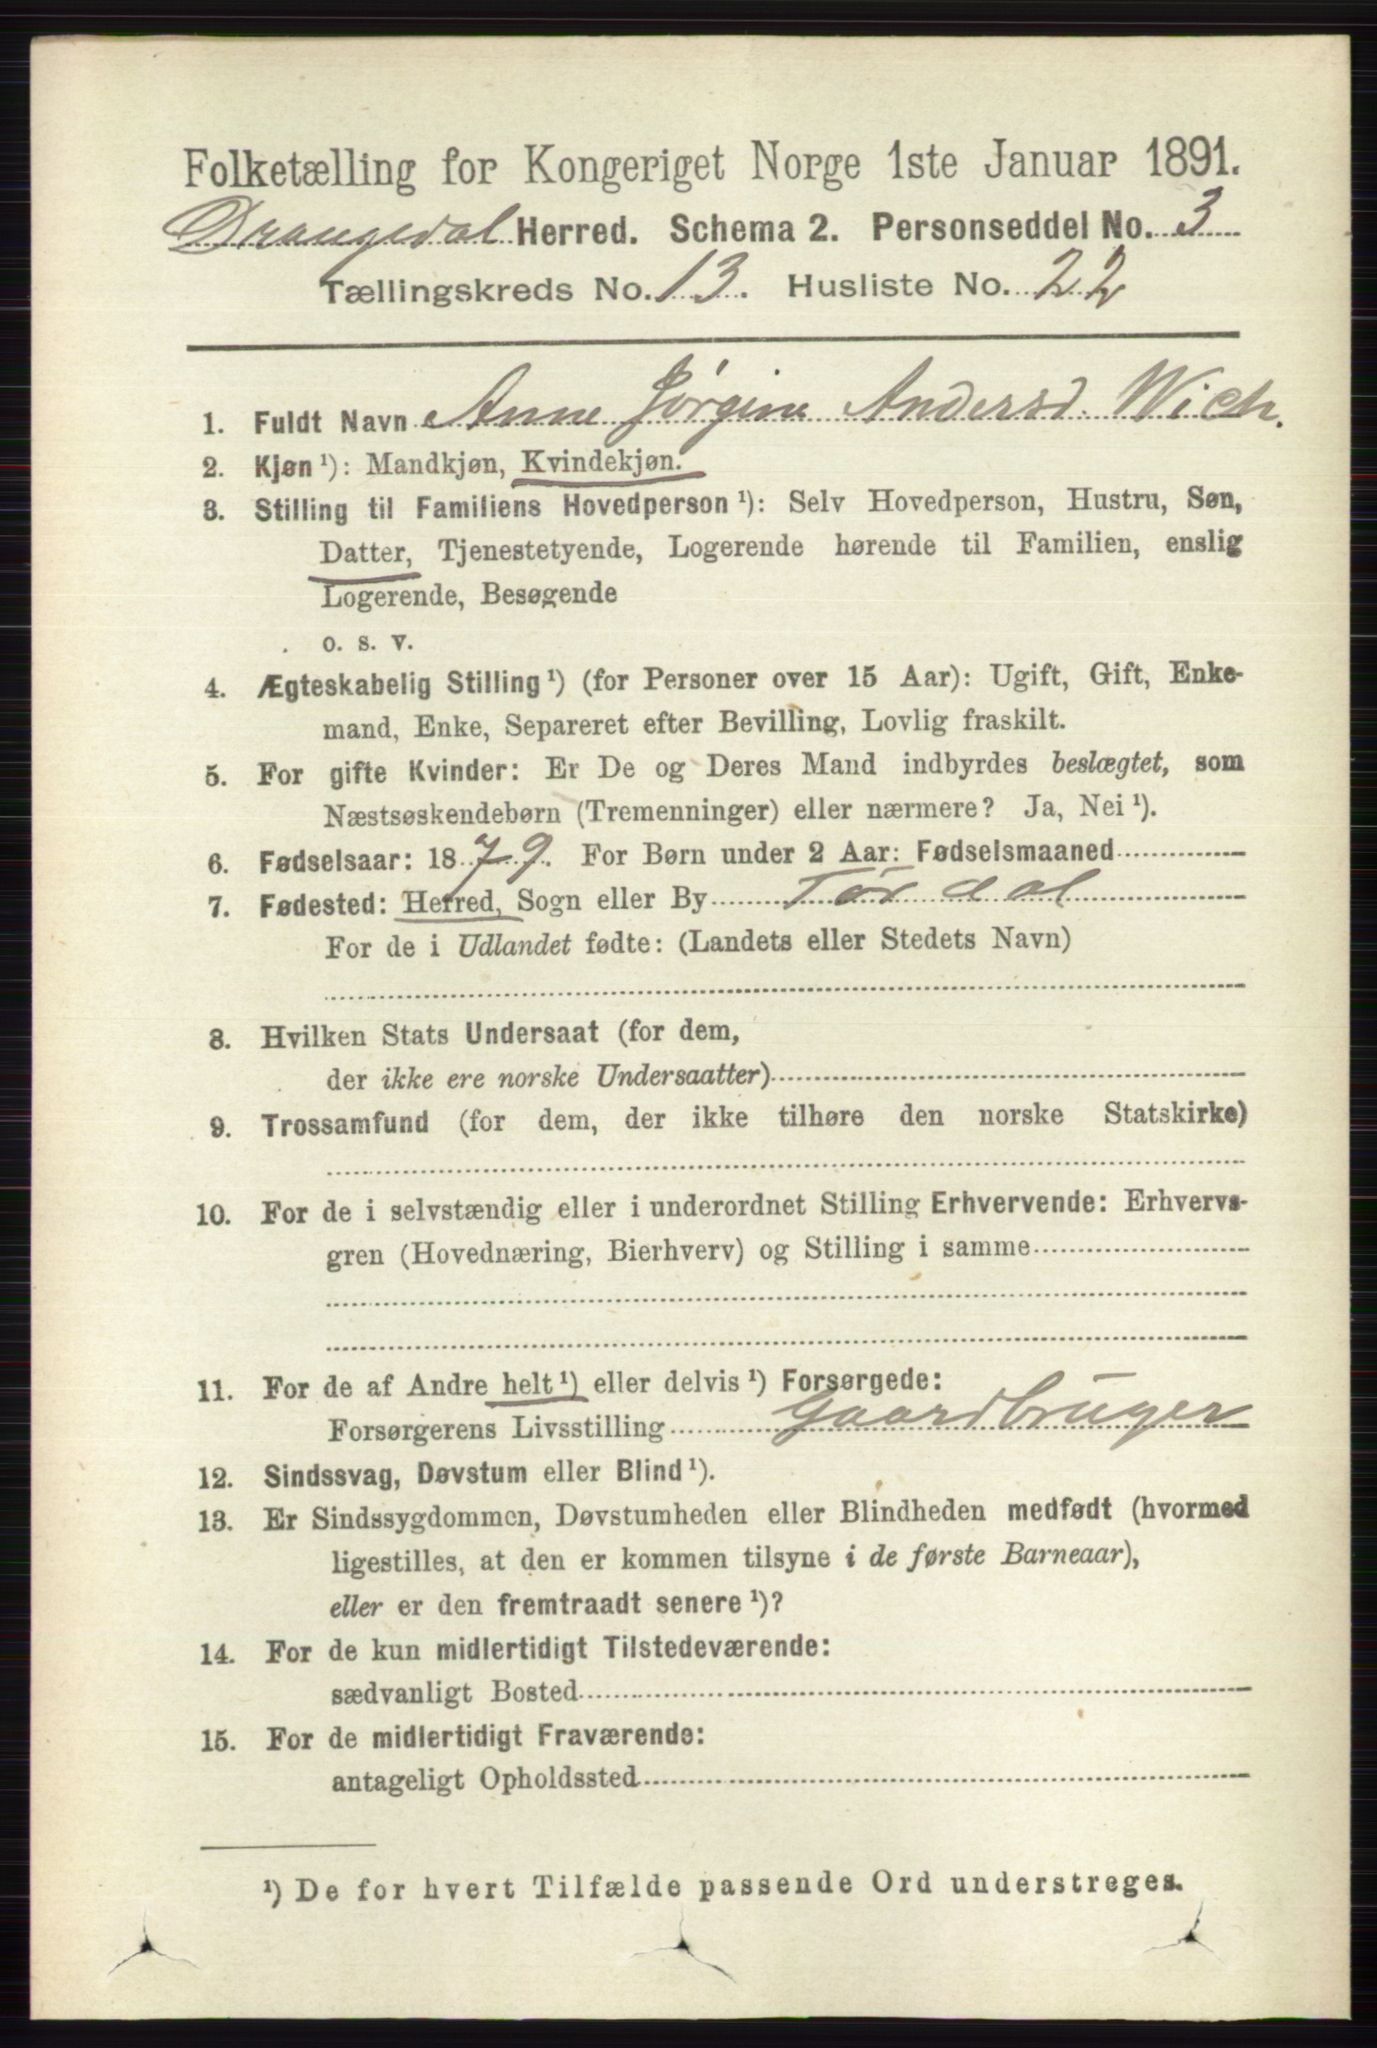 Folketælling for Kongeriget Norge 1ste Januar 1891.
Drangedal Herred. Schema 2. Personseddel No. 3
Tællingskreds No. 13. Husliste No. 22
1. Fuldt Navn Anne Jørgine Andersd. Wich.
2. Kjøn ¹): Mandkjøn, Kvindekjøn.
3. Stilling til Familiens Hovedperson ¹): Selv Hovedperson, Hustru, Søn,
Datter, Tjenestetyende, Logerende hørende til Familien, enslig
Logerende, Besøgende
o. s. v.
4. Ægteskabelig Stilling ¹) (for Personer over 15 Aar): Ugift, Gift, Enke-
mand, Enke, Separeret efter Bevilling, Lovlig fraskilt.
5. For gifte Kvinder: Er De og Deres Mand indbyrdes beslægtet, som
Næstsøskendebørn (Tremenninger) eller nærmere? Ja, Nei ¹).
6. Fødselsaar: 1879. For Børn under 2 Aar: Fødselsmaaned
7. Fødested: Herred, Sogn eller By Tørdal
For de i Udlandet fødte: (Landets eller Stedets Navn)
8. Hvilken Stats Undersaat (for dem,
der ikke ere norske Undersaatter)
9. Trossamfund (for dem, der ikke tilhøre den norske Statskirke)
10. For de i selvstændig eller i underordnet Stilling Erhvervende: Erhvervs-
gren (Hovednæring, Bierhverv) og Stilling i samme
11. For de af Andre helt ¹) eller delvis ¹) Forsørgede:
Forsørgerens Livsstilling Gaardbruger
12. Sindssvag, Døvstum eller Blind ¹).
13. Er Sindssygdommen, Døvstumheden eller Blindheden medfødt (hvormed
ligestilles, at den er kommen tilsyne i de første Barneaar),
eller er den fremtraadt senere ¹)?
14. For de kun midlertidigt Tilstedeværende:
sædvanligt Bosted
15. For de midlertidigt Fraværende:
antageligt Opholdssted
¹) De for hvert Tilfælde passende Ord understreges.